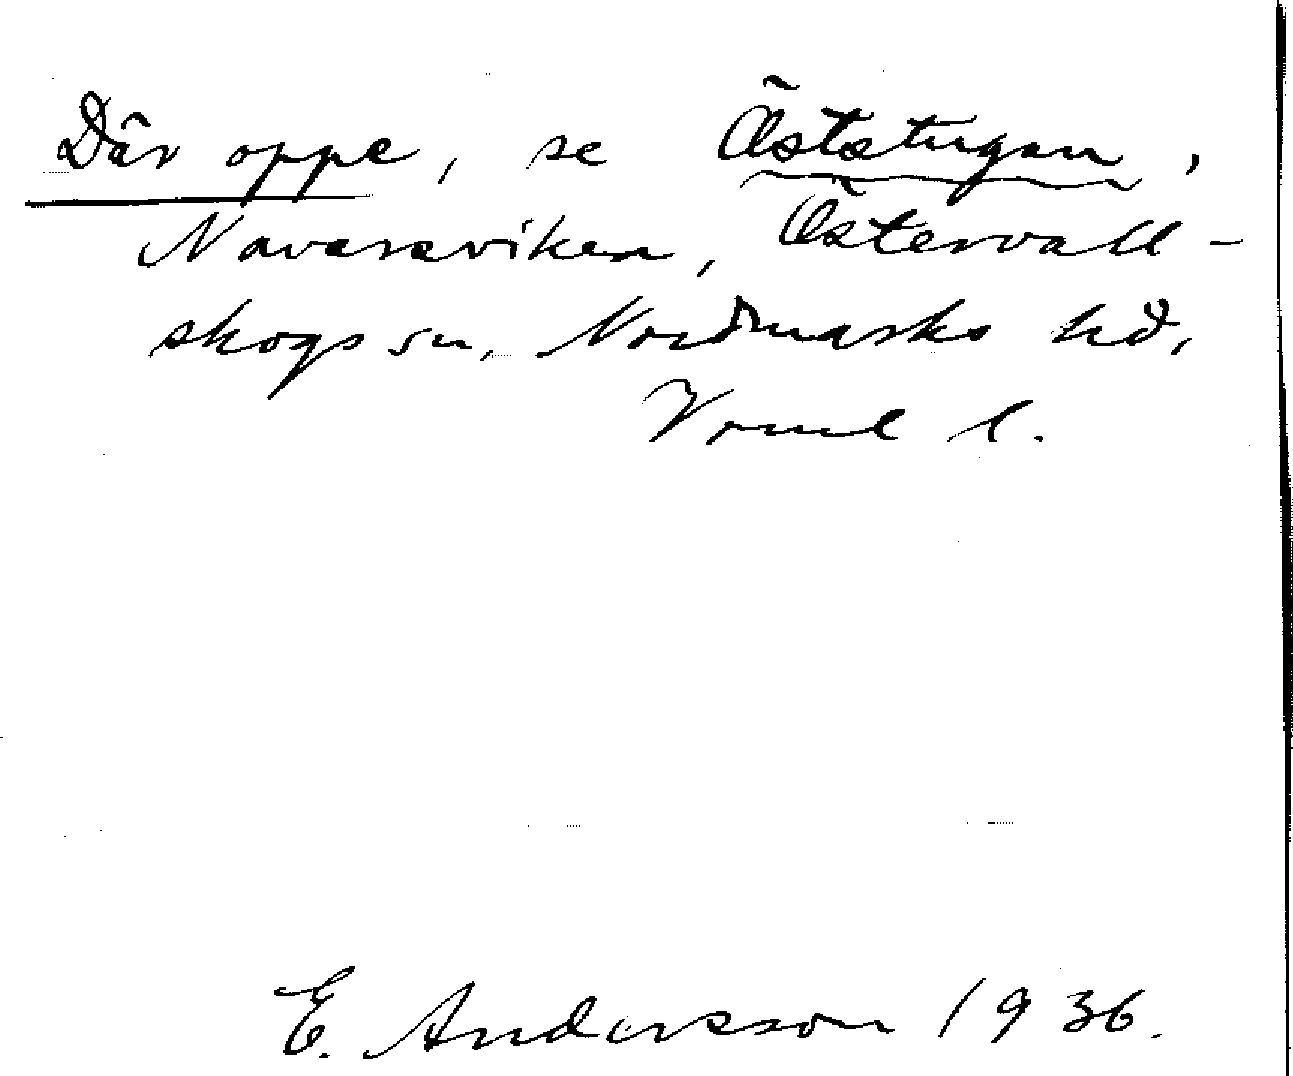 Där oppe, se Öststugan,
Navarsviken, Östervall-
skogs sn, Nordmarks hd,
Vrml l.
E. Andersson 1936.